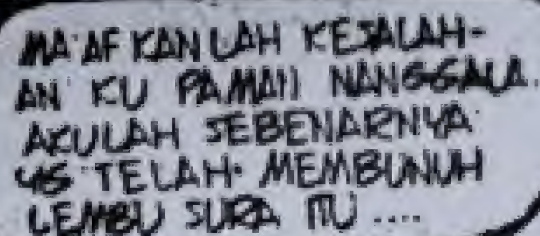 MA'AFKANLAH KESALAH-
AN KU PAMAN NANGGALA.
AKULAH SEBENARNYA
YG TELAH MEMBUNUH
LEMBU SURA ITU ....